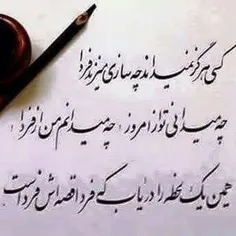 کسی هرگز نمیداند چه سازی میزند فردا
چه میدانی تو از امروز ؛ چه میدانم من از فردا ؛
همین یک لحظه را دریاب که فردا قصه اش فرداست